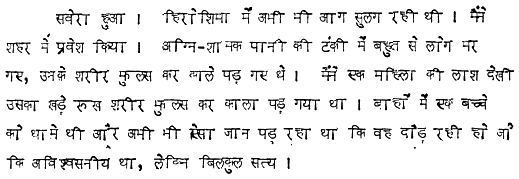 सवेरा हुआ । हिरोशिमा में अभी भी आग सुलग रही थी । मैंने
शहर में प्रवेश किया । अग्नि-शामक पानी की टंकी में बहुत से लोग मर
गए, उनके शरीर झुलस कर काले पड़ गए थे । मैंने एक महिला की लाश देखी
उसका खड़े रुख शरीर झुलस कर काला पड़ गया था । बाहों में एक बच्चे
को थामे थी और अभी भी ऐसा जान पड़ रहा था कि वह दौड़ रही हो जो
कि अविश्वसनीय था, लेकिन बिलकुल सत्य ।